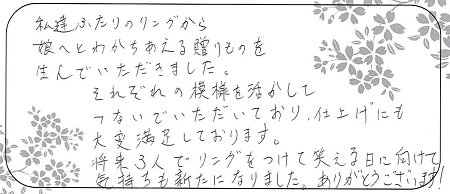 私達ふたりのリングから
娘へとわかちあえる贈りものを
生んでいただきました。
それぞれの模様を活かして
つないでいただいており、仕上げにも
大変満足しております。
将来3人でリングをつけて笑える日に向けて
気持ちも新たになりました。ありがとうございます!